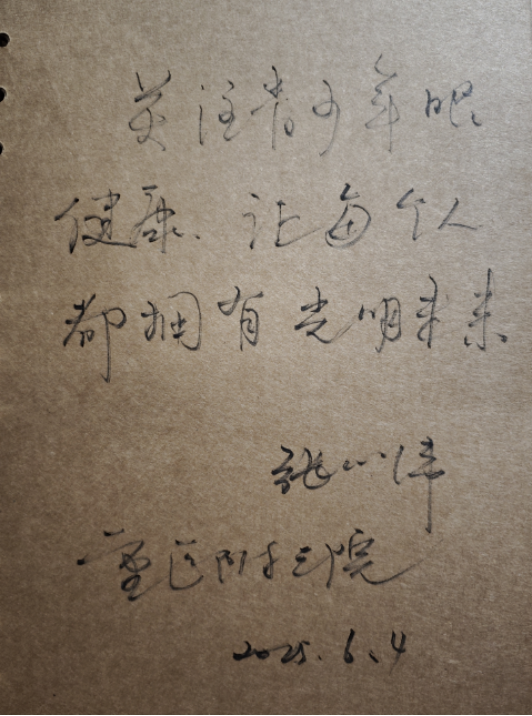 关注青少年眼
健康、让每个人
都拥有光明未来
张小伟
重医附三院
2025.6.4